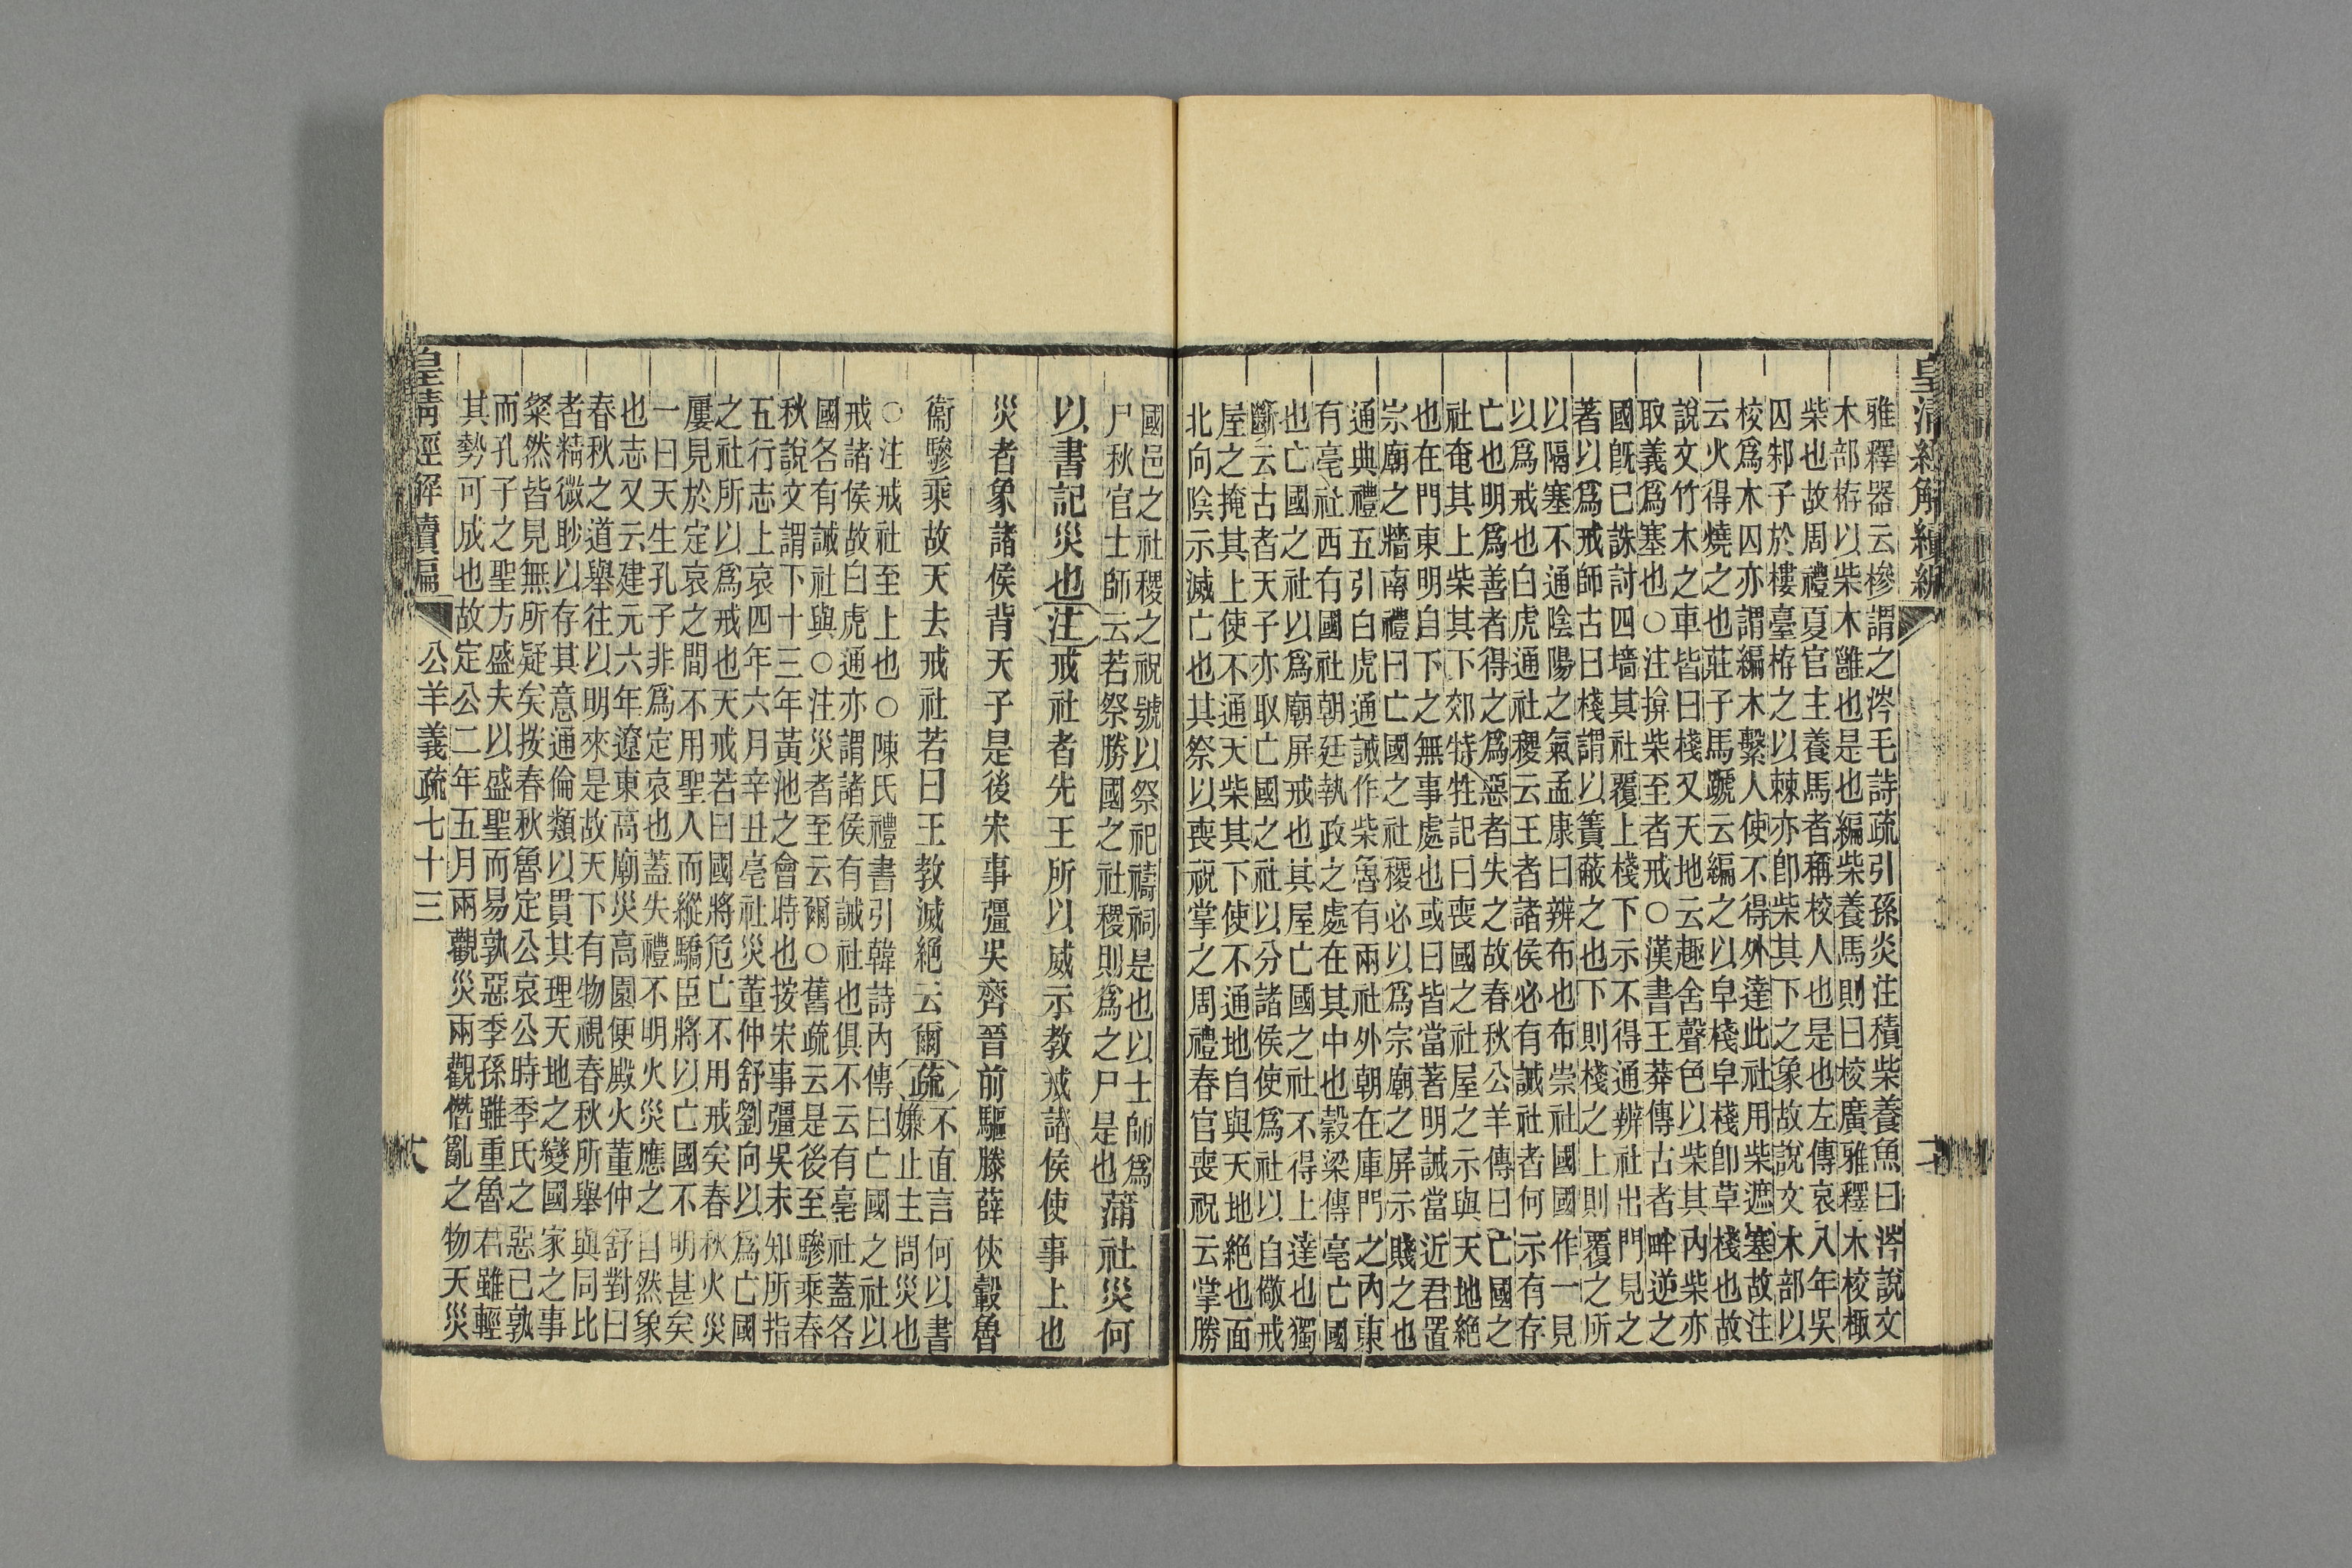 皇清經解續編
雅釋器云槮謂之涔毛詩疏引孫炎注積柴養魚曰涔說文
木部栫以柴木雝也是也編柴養馬則曰校廣雅釋木校㮛
柴也故周禮夏官主養馬者稱校人也是也左傳哀八年吳
囚邾子於樓臺栫之以棘亦卽柴其下之象故說文木部以
校爲木囚亦謂編木繫人使不得外達此社用柴遮塞故注
云火得燒之也莊子馬蹏云編之以皁棧皁棧卽草棧也故
說文竹木之車皆曰棧又天地云趣舍聲色以柴其內柴亦
取義爲塞也○注揜柴至者戒○漢書王莽傳古者畔逆之
國旣已誅討四墻其社覆上棧下示不得通辨社出門見之
著以爲戒師古曰棧謂以簀蔽之也下則棧之上則覆之所
以隔塞不通陰陽之氣孟康曰辨布也布崇社國國作一見
以爲戒也白虎通社稷云王者諸侯必有誡社者何示有存
亡也明爲善者得之爲惡者失之故春秋公羊傳曰亡國之
社奄其上柴其下郊特牲記曰喪國之社屋之示與天地絕
也在門東明自下之無事處也或曰皆當著明誡當近君置
宗廟之牆南禮曰亡國之社稷必以爲宗廟之屏示賤之也
通典禮五引白虎通誡作柴魯有兩社外朝在庫門之內東
有亳社西有國社朝廷執政之處在其中也穀梁傳亳亡國
也亡國之社以爲廟屏戒也其屋亡國之社不得上達也獨
斷云古者天子亦取亡國之社以分諸侯使爲社以自儆戒
屋之掩其上使不通天柴其下使不通地自與天地絕也面
北向陰示滅亡也其祭以喪祝掌之周禮春官喪祝云掌勝
國邑之社稷之祝號以祭祀禱祠是也以士師爲
尸秋官士師云若祭勝國之社稷則爲之尸是也蒲社災何
以書記災也注戒社者先王所以威示教戒諸侯使事上也
災者象諸侯背天子是後宋事彊吳齊晉前驅滕薛俠轂魯
衞驂乘故天去戒社若曰王教滅絕云爾疏不直言何以書
嫌止主問災也
○注戒社至上也○陳氏禮書引韓詩內傳曰亡國之社以
戒諸侯故白虎通亦謂諸侯有誡社也俱不云有亳社蓋各
國各有誡社與○注災者至云爾○舊疏云是後至驂乘春
秋說文謂下十三年黃池之會時也按宋事彊吳未知所指
五行志上哀四年六月辛丑亳社災董仲舒劉向以爲亡國
之社所以爲戒也天戒若曰國將危亡不用戒矣春秋火災
屢見於定哀之間不用聖人而縱驕臣將以亡國不明甚矣
一曰天生孔子非爲定哀也蓋失禮不明火災應之自然象
也志又云建元六年遼東高廟災高園便殿火董仲舒對曰
春秋之道舉往以明來是故天下有物視春秋所舉與同比
者精微眇以存其意通倫類以貫其理天地之變國家之事
粲然皆見無所疑矣按春秋魯定公哀公時季氏之惡已孰
而孔子之聖方盛夫以盛聖而易孰惡季孫雖重魯君雖輕
其勢可成也故定公二年五月兩觀災兩觀僭亂之物天災
皇清經解續編 公羊義疏七十三